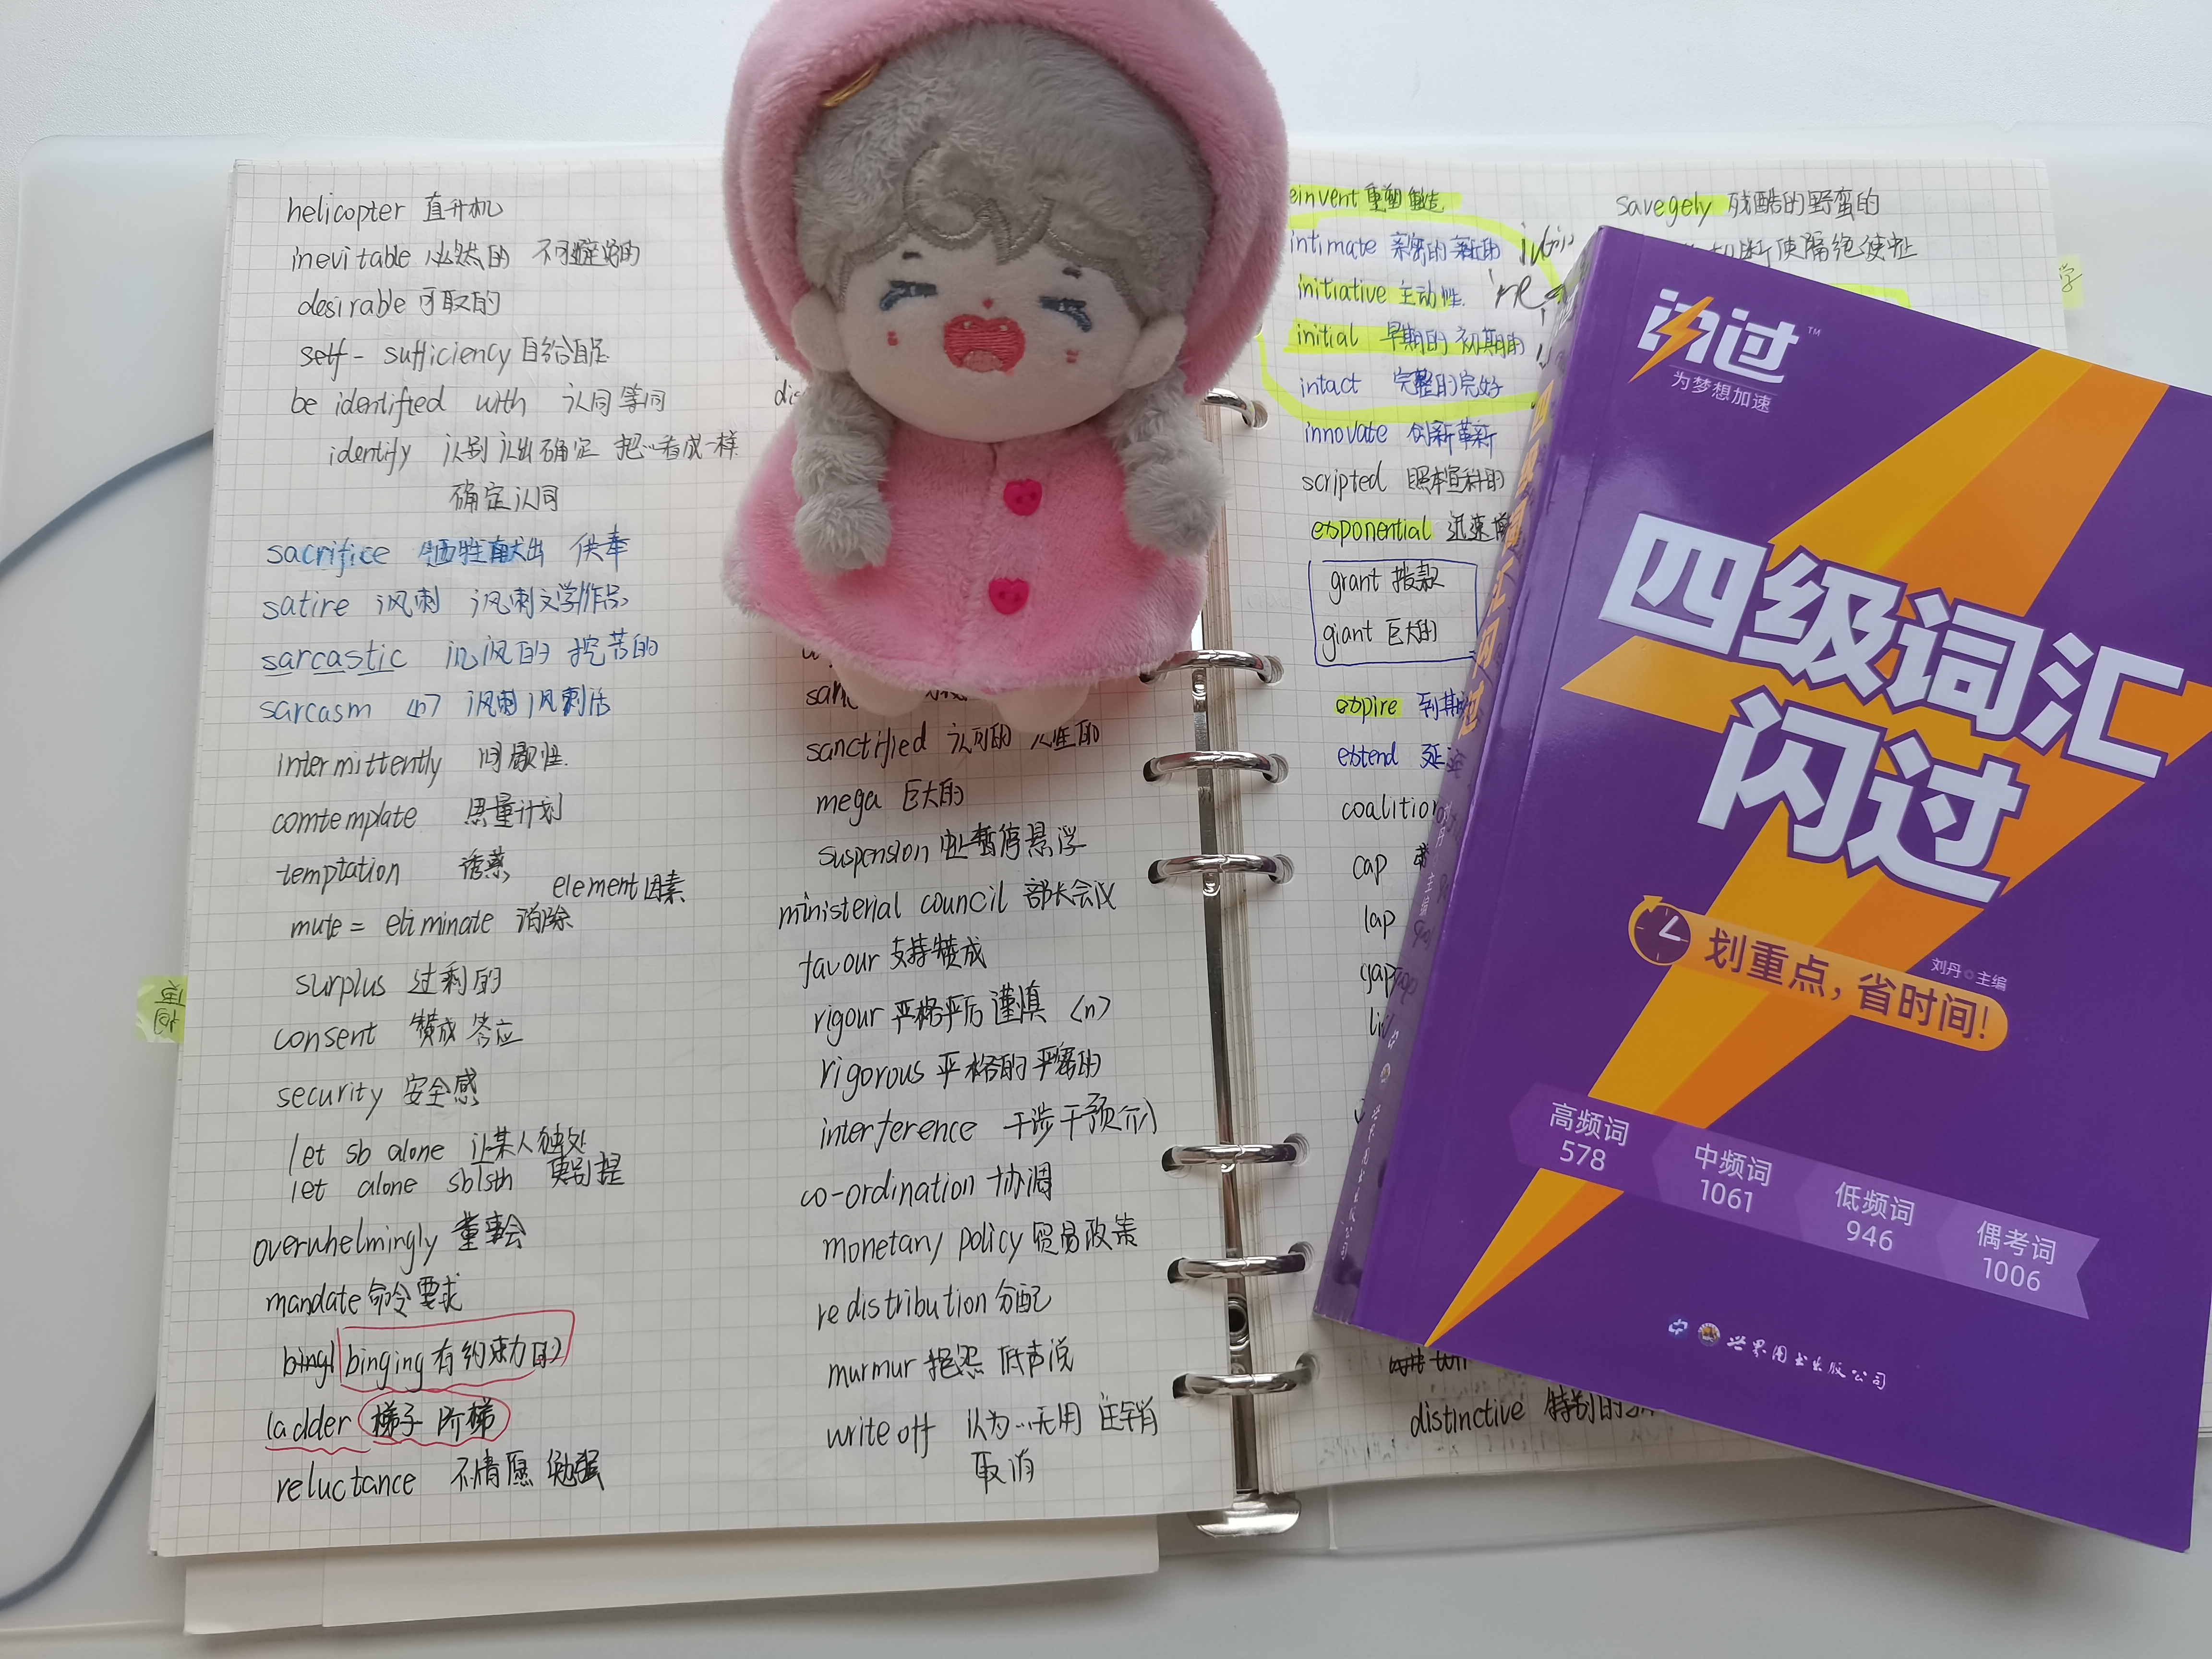 helicopter 直升机
inevitable 必然的 不可避免的
desirable 可取的
self-sufficiency 自给自足
be identified with 认同等同
identify 识别认出确定 把…看成一样
确定认同
sacrifice 牺牲献出 供奉
satire 讽刺 讽刺文学作品
sarcastic 讥讽的 挖苦的
sarcasm <n> 讽刺讽刺话
intermittently 间歇性
comtemplate 思量计划
temptation 诱惑
element因素
mute = eliminate 消除
surplus 过剩的
consent 赞成 答应
security 安全感
let sb alone 让某人独处
let alone sb/sth 更别提
overwhelmingly 董事会
mandate 命令要求
binging 有约束力的
ladder 梯子 阶梯
reluctance 不情愿 勉强
sanctified 认可的
mega 巨大的
suspension 中止暂停悬浮
ministerial council 部长会议
favour 支持赞成
rigour 严格严厉 谨慎 <n>
rigorous 严格的 严密的
interference 干涉干预介入
co-ordination 协调
monetary policy 贸易政策
redistribution 分配
murmur 抱怨 低声说
write off 认为…无用 注销
取消
einvent 重塑重造
intimate 亲密的亲近的
initiative 主动性
initial 早期的 初期的
intact 完整的完好
innovate 创新革新
scripted 照本宣科的
exponential 迅速
grant 拨款
giant 巨大的
expire 到期
extend 延
coalition
cap
lap
gap
distinctive 特别的
savegely 残酷的野蛮的
切断使隔绝使
闪过™
为梦想加速
四级词汇
闪过
划重点，省时间！
刘丹 主编
高频词
578
中频词
1061
低频词
946
偶考词
1006
世界图书出版公司